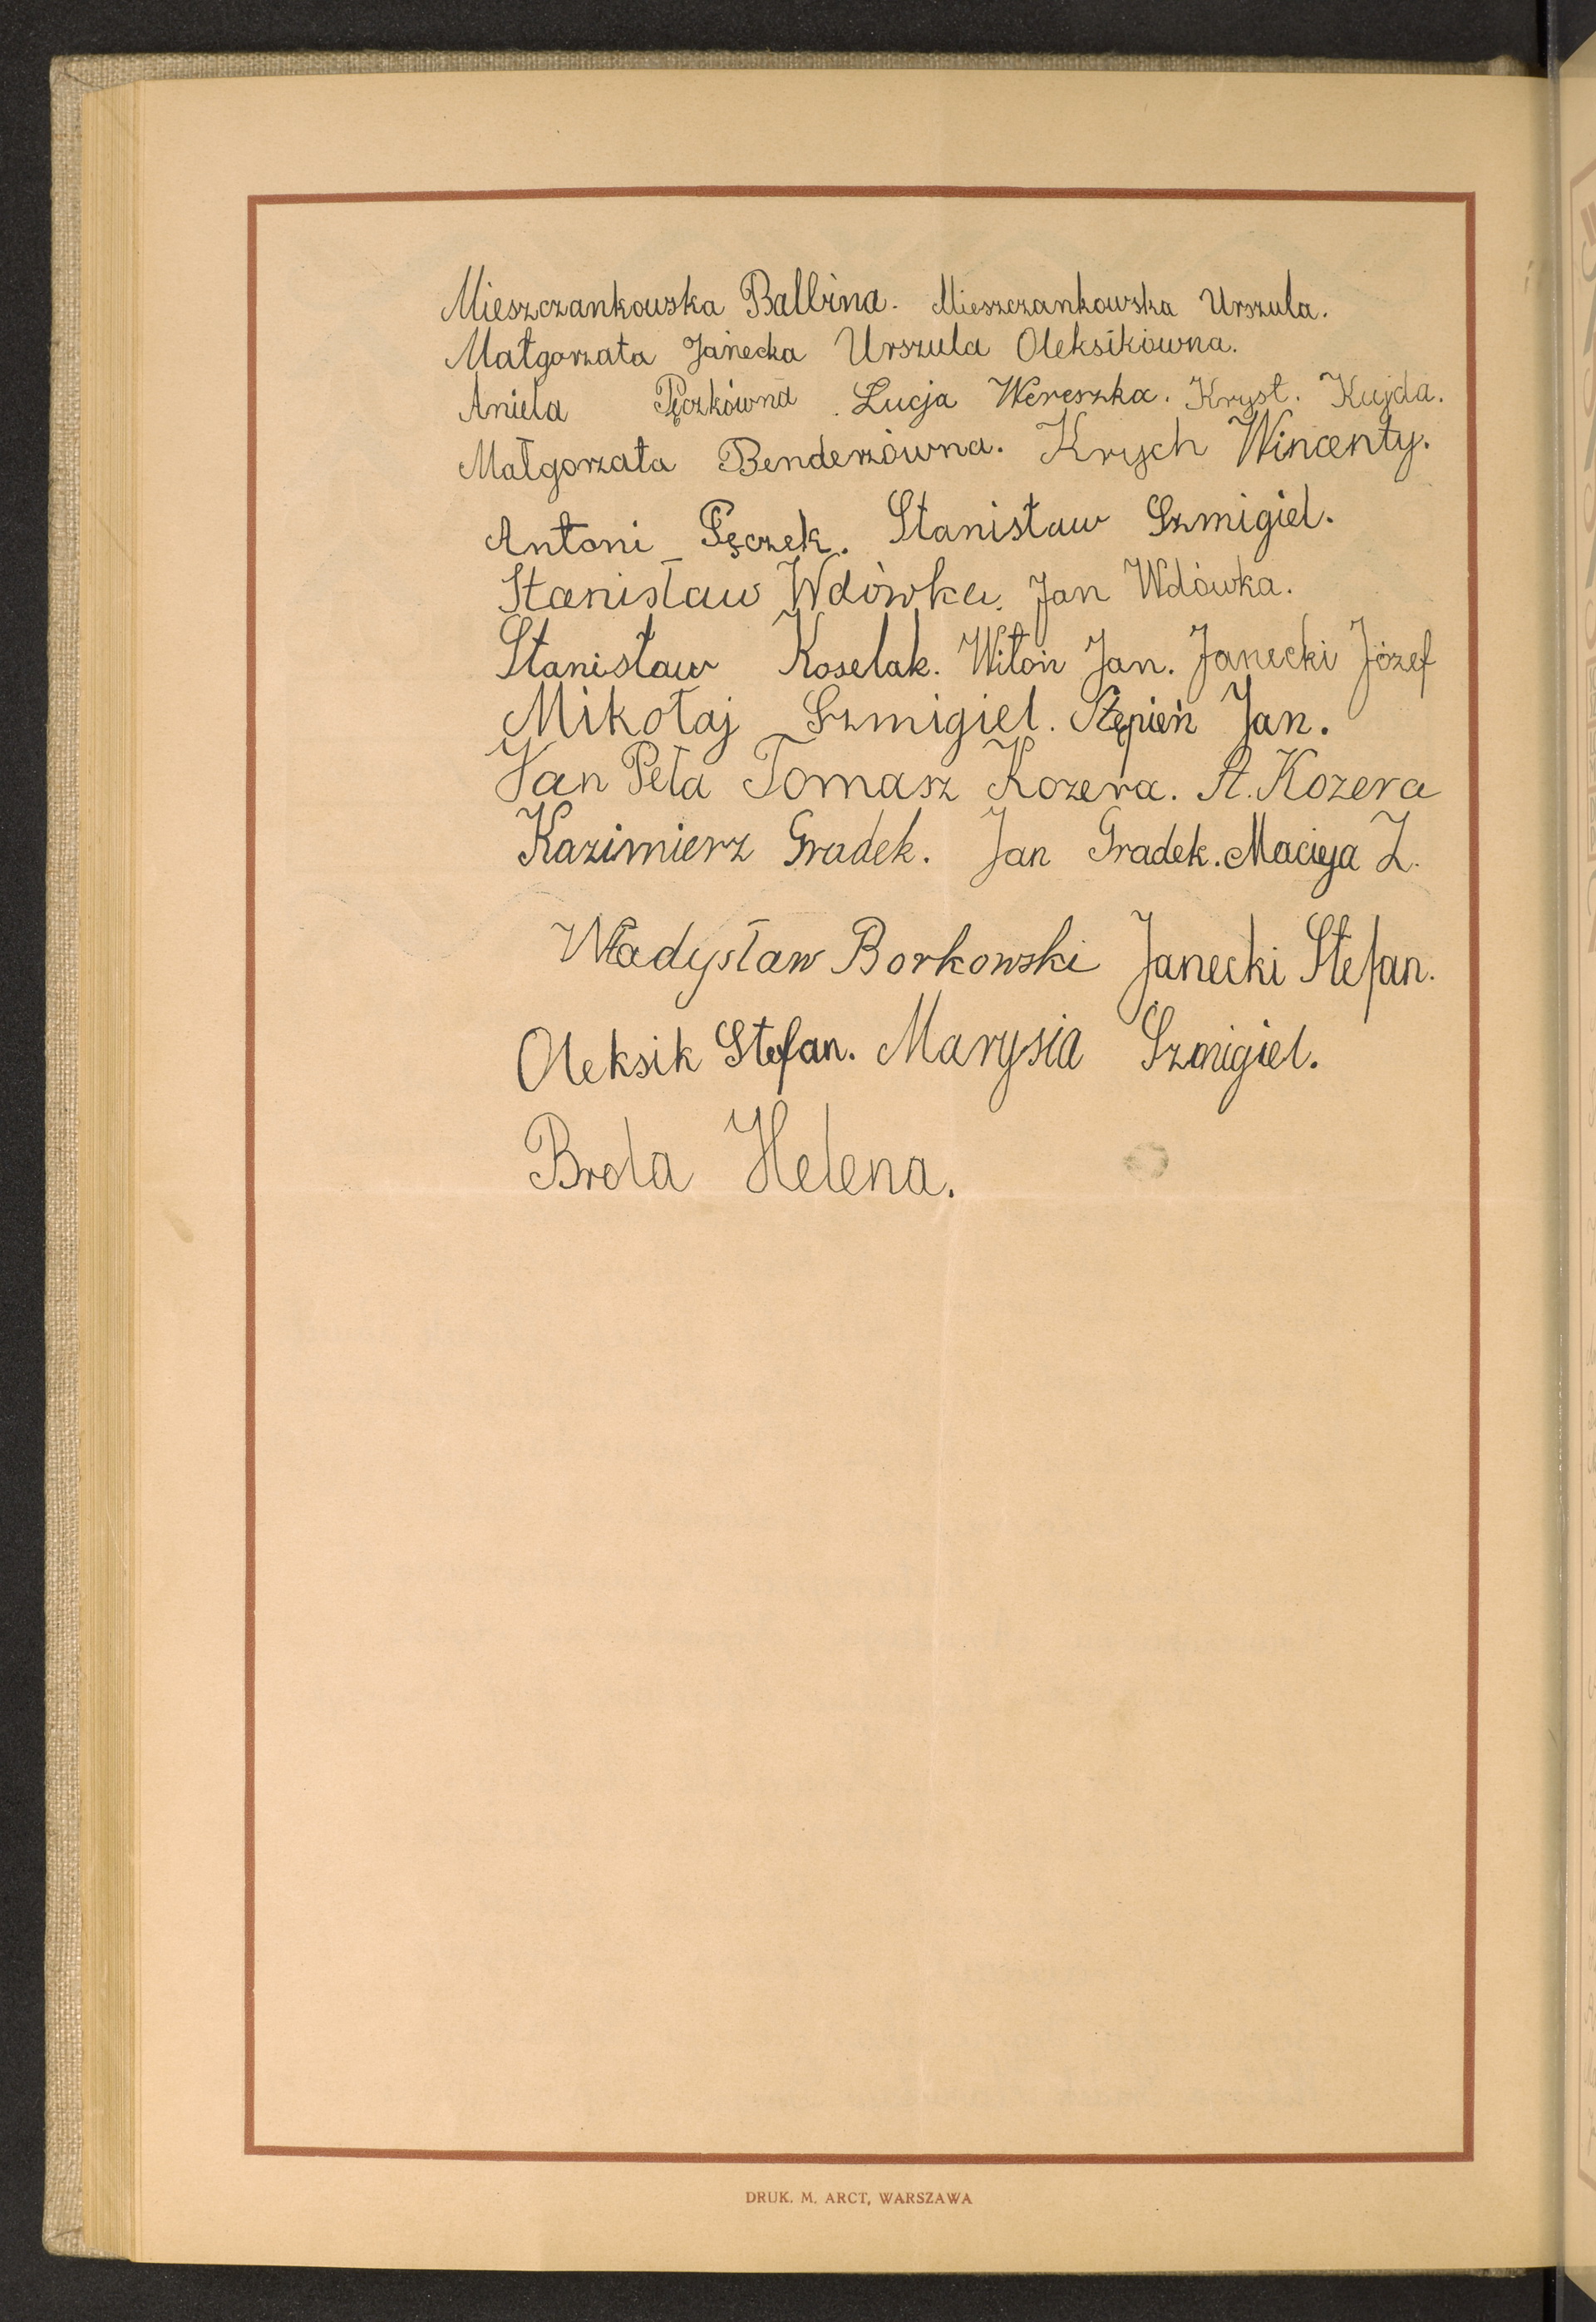 Mieszczankowska Balbina. Mieszczankowska Urszula.
Małgorzata Janecka Urszula Oleksikówna.
Aniela Pęczkówna Łucja Wereszka. Kryst. Kujda.
Małgorzata Benderzówna. Krych Wincenty.
Antoni Pęczek. Stanisław Szmigiel.
Stanisław Wdówka, Jan Wdówka.
Stanisław Koselak. Witoń Jan. Janecki Józef
Mikołaj Szmigiel. Stępień Jan.
Jan Peła Tomasz Kozera. St. Kozera
Kazimierz Gradek. Jan Gradek. Macieja Z.
Władysław Borkowski Janecki Stefan.
Oleksik Stefan. Marysia Szmigiel.
Brola Helena.
DRUK. M. ARCT, WARSZAWA